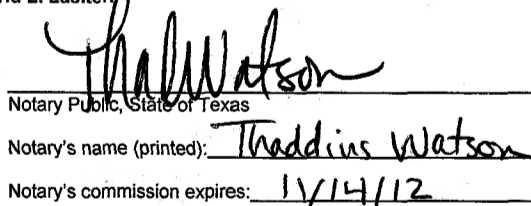 Thad Watson
Notary Public, State of Texas
Notary's name (printed): Thaddius Watson
Notary's commission expires: 11/14/12